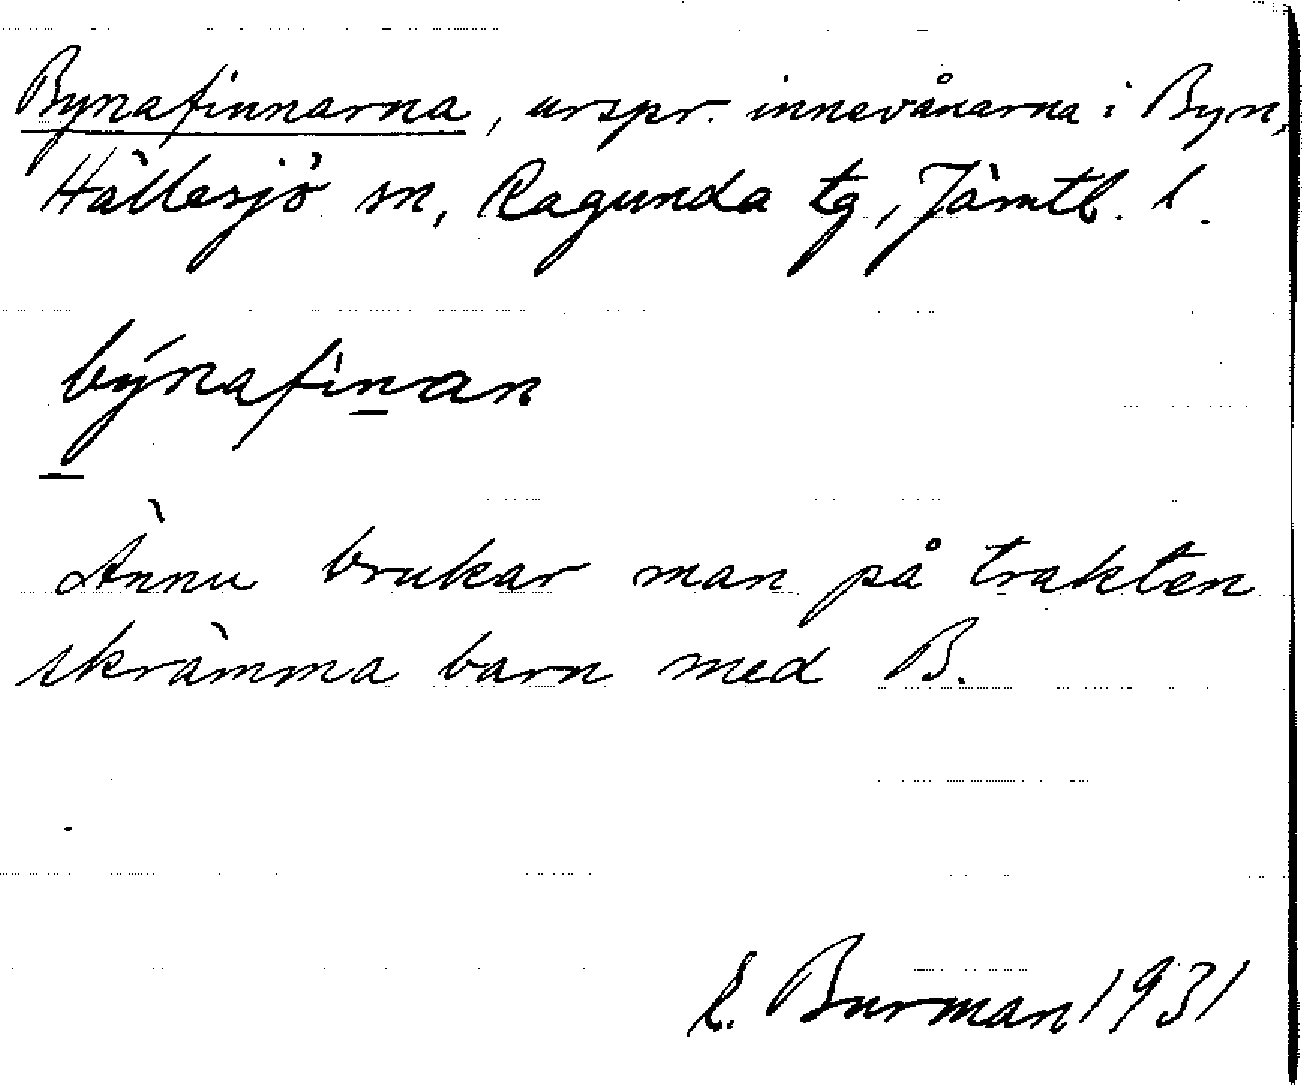 Bynafinnarna, urspr. innevånarna i Byn,
Hällesjö sn, Ragunda tg, Jämtl. l.
býnafinan
Ännu brukar man på trakten
skrämma barn med B.
L. Burman 1931